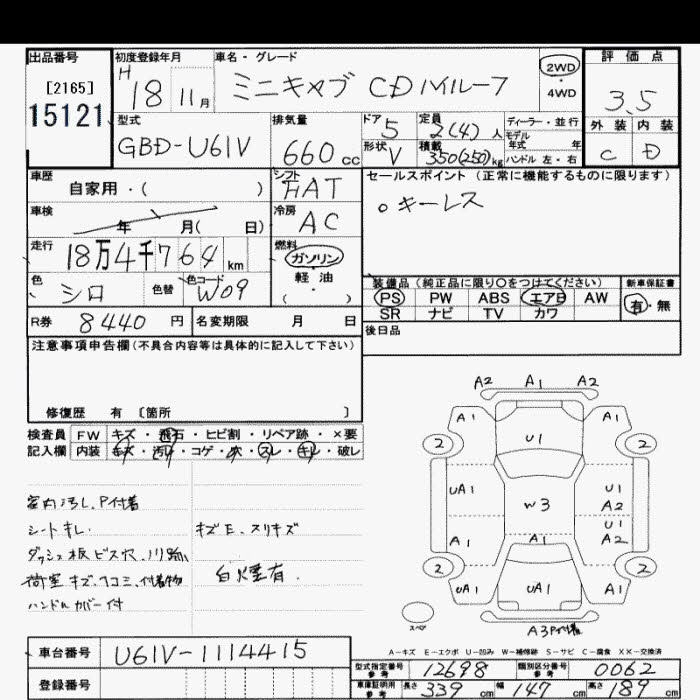 出品番号
[2165]
15121
初度登録年月
H 18 11月
車名・グレード
ミニキャブ CDハイルーフ
2WD
・
4WD
評価点
3.5
外装 内装
C D
型式
GBD-U61V
排気量
660cc
ドア 5
形状 V
定員 2(4)人
積載 350(250)kg
ディーラー・並行
モデル年式 年
ハンドル 左・右
車歴
自家用・( )
車検
年 月( 日)
走行
18万4千764km
色
シロ
色替
色コード
W09
シフト
FAT
冷房
AC
燃料
ガソリン
軽油
( )
セールスポイント (正常に機能するものに限ります)
○キーレス
装備品(純正品に限り○をつけてください)
PS PW ABS エアB AW
SR ナビ TV カワ
新車保証書
有・無
R券 8440円
名変期限 月 日
後日品
注意事項申告欄(不具合内容等は具体的に記入して下さい)
修復歴 有 〔箇所 〕
検査員 FW キズ・飛石・ヒビ割・リペア跡・×要
記入欄 内装 キズ・汚レ・コゲ・穴・スレ・キレ・破レ
室内汚レ、P付着
シートキレ.
キズE、スリキズ
ダッシュ板ビス穴、ノリ跡
荷室キズ、ヘコミ、付着物
ハンドルカバー付
A2 A1 A2
A1 A1
2 U1 2
UA1 W3 U1
A2
U1
A1 A1 A2
2 2
UA1 UA1 A1
スペア
A3 P付着
A-キズ E-エクボ U-凹み W-補修跡 S-サビ C-腐食 XX-交換済
車台番号 U61V-1114415
登録番号
型式指定番号 参考 12698
類別区分番号 参考 0062
車庫証明用 参考 長さ 339cm 幅 147cm 高さ 189cm